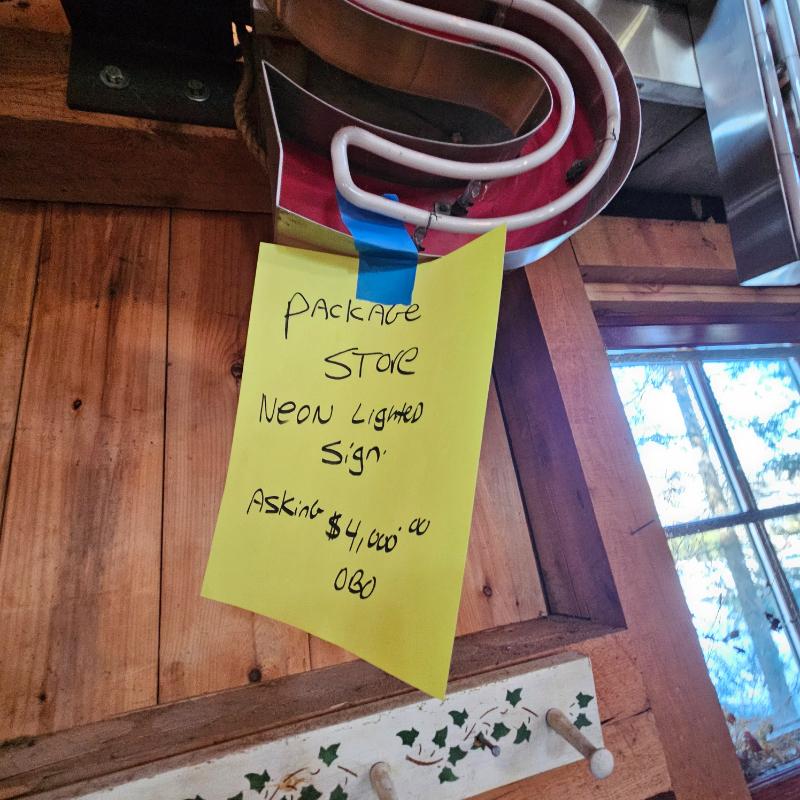 PACKAGE
STORE
NEON LigHTED
Sign.
ASKiNG $4,000.00
OBO